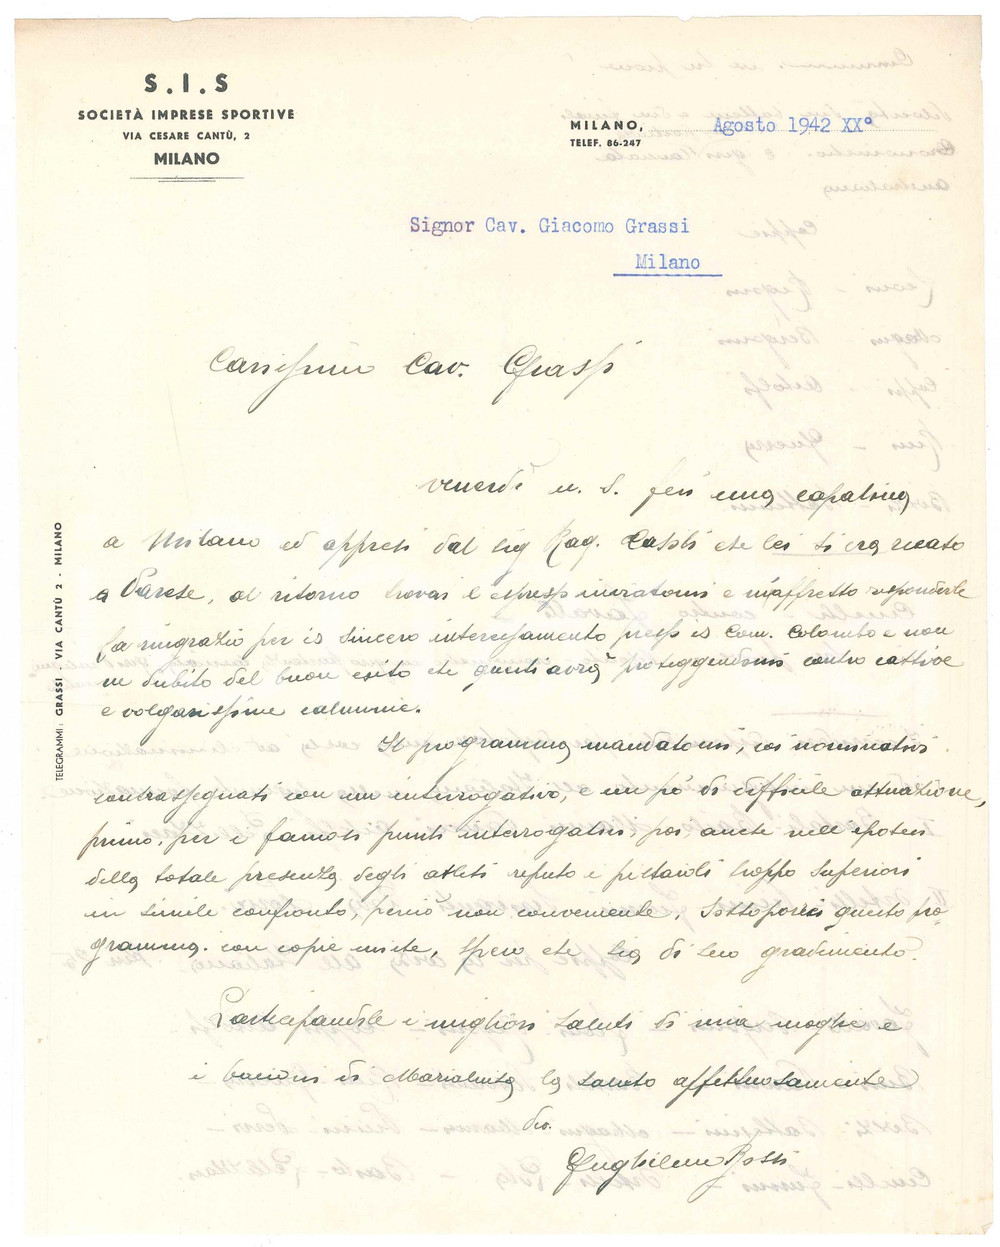 S.I.S
SOCIETÀ IMPRESE SPORTIVE
VIA CESARE CANTÙ, 2
MILANO
MILANO, Agosto 1942 XX°
TELEF. 86-247
Signor Cav. Giacomo Grassi
Milano
Carissimo Cav. Grassi
venerdì u. s. feci una capatina
a Milano ed appresi dal sig Rag. che lei si era recato
a Varese, al ritorno trovai l'espresso inviatomi e m'affretto risponderle
La ringrazio per il sincero interessamento presso il Com. Colombo e non
ne dubito del buon esito che quanti avrà proteggendomi contro cattive
e volgarissime calunnie.
Il programma mandatomi, coi nominativi
contrassegnati con un interrogativo, è un pò di difficile attuazione,
primo, per i famosi punti interrogativi, poi anche nell'ipotesi
della totale presenza degli atleti reputo i pistaioli troppo superiori
in simile confronto, perciò non conveniente, sottoporrei questo pro-
gramma. con copie unite, spero che sia di suo gradimento.
Partecipandole i migliori saluti di mia moglie e
i bacioni di Marialuisa la saluto affettuosamente
Suo.
Guglielmo Bossi
TELEGRAMMI: GRASSI - VIA CANTÙ 2 - MILANO